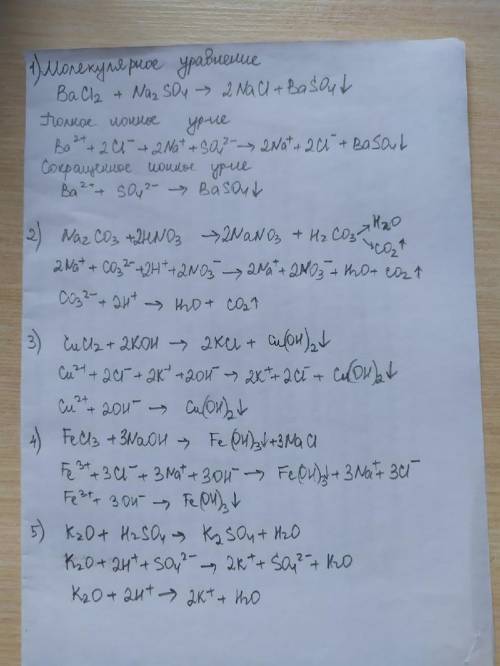 1) Молекулярное уравнение
BaCl2 + Na2SO4 → 2NaCl + BaSO4↓
Полное ионные ур-ие
Ba²⁺ + 2Cl⁻ + 2Na⁺ + SO4²⁻ → 2Na⁺ + 2Cl⁻ + BaSO4↓
Сокращенное ионные ур-ие
Ba²⁺ + SO4²⁻ → BaSO4↓
2) Na2CO3 + 2HNO3 → 2NaNO3 + H2CO3 → H2O
→ CO2↑
2Na⁺ + CO3²⁻ + 2H⁺ + 2NO3⁻ → 2Na⁺ + 2NO3⁻ + H2O + CO2↑
CO3²⁻ + 2H⁺ → H2O + CO2↑
3) CuCl2 + 2KOH → 2KCl + Cu(OH)2↓
Cu²⁺ + 2Cl⁻ + 2K⁺ + 2OH⁻ → 2K⁺ + 2Cl⁻ + Cu(OH)2↓
Cu²⁺ + 2OH⁻ → Cu(OH)2↓
4) FeCl3 + 3NaOH → Fe(OH)3↓ + 3NaCl
Fe³⁺ + 3Cl⁻ + 3Na⁺ + 3OH⁻ → Fe(OH)3↓ + 3Na⁺ + 3Cl⁻
Fe³⁺ + 3OH⁻ → Fe(OH)3↓
5) K2O + H2SO4 → K2SO4 + H2O
K2O + 2H⁺ + SO4²⁻ → 2K⁺ + SO4²⁻ + H2O
K2O + 2H⁺ → 2K⁺ + H2O